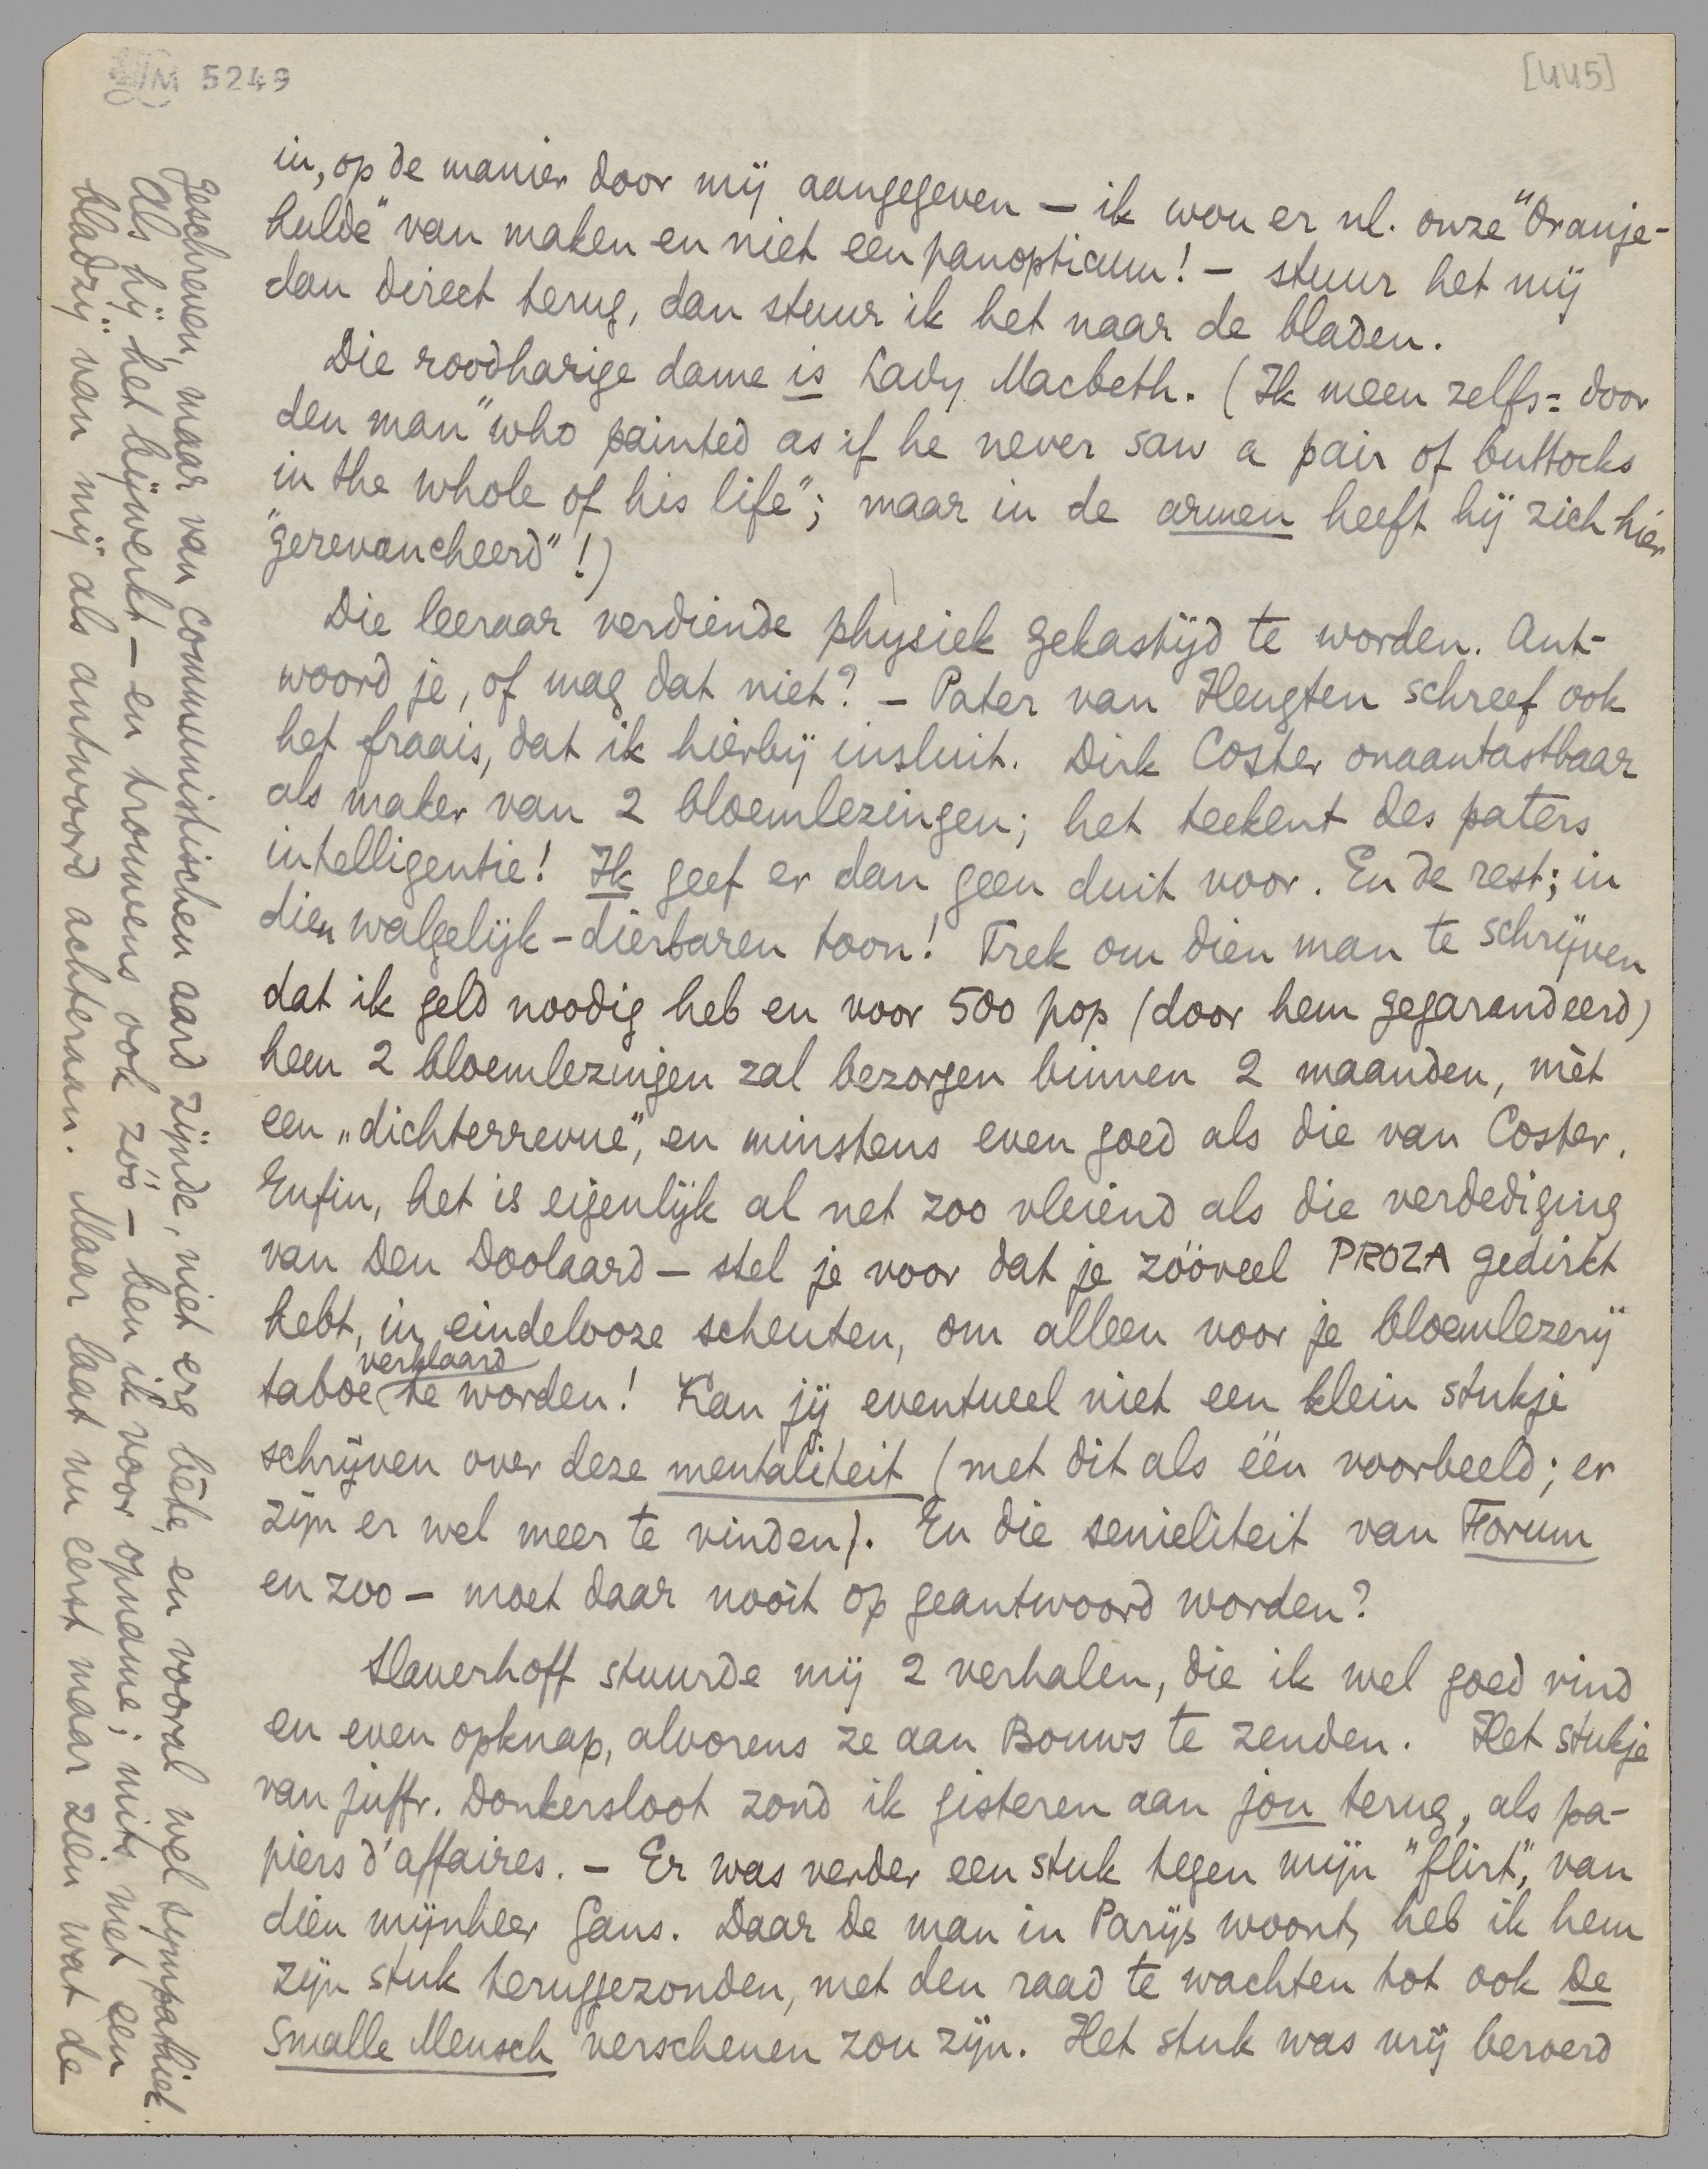 LM 5249
[445]
in, op de manier door mij aangegeven — ik wou er nl. onze "Oranje-
hulde" van maken en niet een panopticum! — stuur het mij
dan direct terug, dan stuur ik het naar de bladen.
Die roodharige dame is Lady Macbeth. (Ik meen zelfs: door
den man "who painted as if he never saw a pair of buttocks
in the whole of his life"; maar in de armen heeft hij zich hier
"gerevancheerd"!)
Die leeraar verdiende physiek gekastijd te worden. Ant-
woord je, of mag dat niet? — Pater van Heugten schreef ook
het fraais, dat ik hierbij insluit. Dirk Coster onaantastbaar
als maker van 2 bloemlezingen; het teekent des paters
intelligentie! Ik geef er dan geen duit voor. En de rest; in
dien walgelijk-dierbaren toon! Trek om dien man te schrijven
dat ik geld noodig heb en voor 500 pop (door hem gegarandeerd)
hem 2 bloemlezingen zal bezorgen binnen 2 maanden, mèt
een „dichterrevue", en minstens even goed als die van Coster.
Enfin, het is eigenlijk al net zoo vleiend als die verdediging
van Den Doolaard — stel je voor dat je zóóveel PROZA gedirkt
hebt, in eindelooze scheuten, om alleen voor je bloemlezerij
taboe verklaard te worden! Kan jij eventueel niet een klein stukje
schrijven over deze mentaliteit (met dit als één voorbeeld; er
zijn er wel meer te vinden). En die senieliteit van Forum
en zoo — moet daar nooit op geantwoord worden?
Slauerhoff stuurde mij 2 verhalen, die ik wel goed vind
en even opknap, alvorens ze aan Bouws te zenden. Het stukje
van juffr. Donkersloot zond ik gisteren aan jou terug, als pa-
piers d'affaires. — Er was verder een stuk tegen mijn "flirt", van
dien mijnheer Gans. Daar de man in Parijs woont, heb ik hem
zijn stuk teruggezonden, met den raad te wachten tot ook De
Smalle Mensch verschenen zou zijn. Het stuk was vrij beroerd
geschreven, maar van communistischen aard zijnde, niet erg bête, en vooral wel sympathiek.
Als hij het bijwerkt — en trouwens ook zóó — ben ik voor opname; mits met een
bladzij van mij als antwoord achteraan. Maar laat nu eerst maar zien wat de